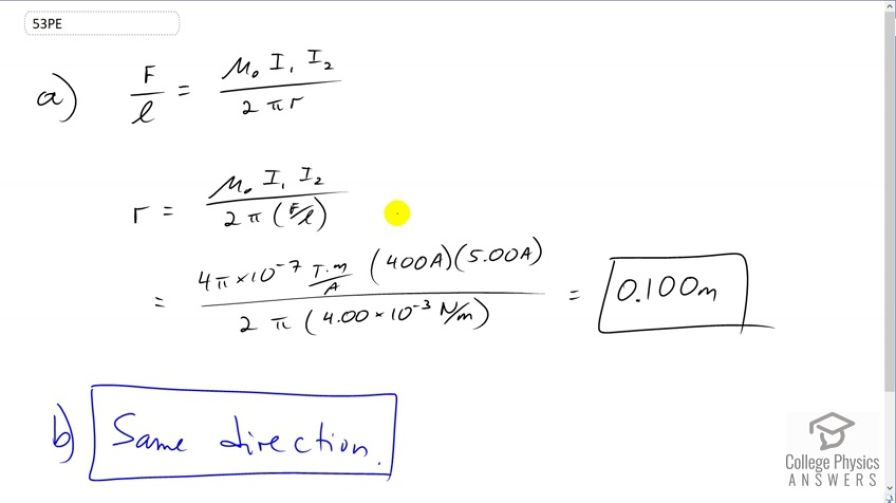 53PE
a) F/l = μ₀ I₁ I₂ / 2πr
r = μ₀ I₁ I₂ / 2π(F/l)
= 4π×10⁻⁷ T·m/A (400A)(5.00A) / 2π(4.00×10⁻³ N/m) = 0.100m
b) Same direction.
College Physics
ANSWERS